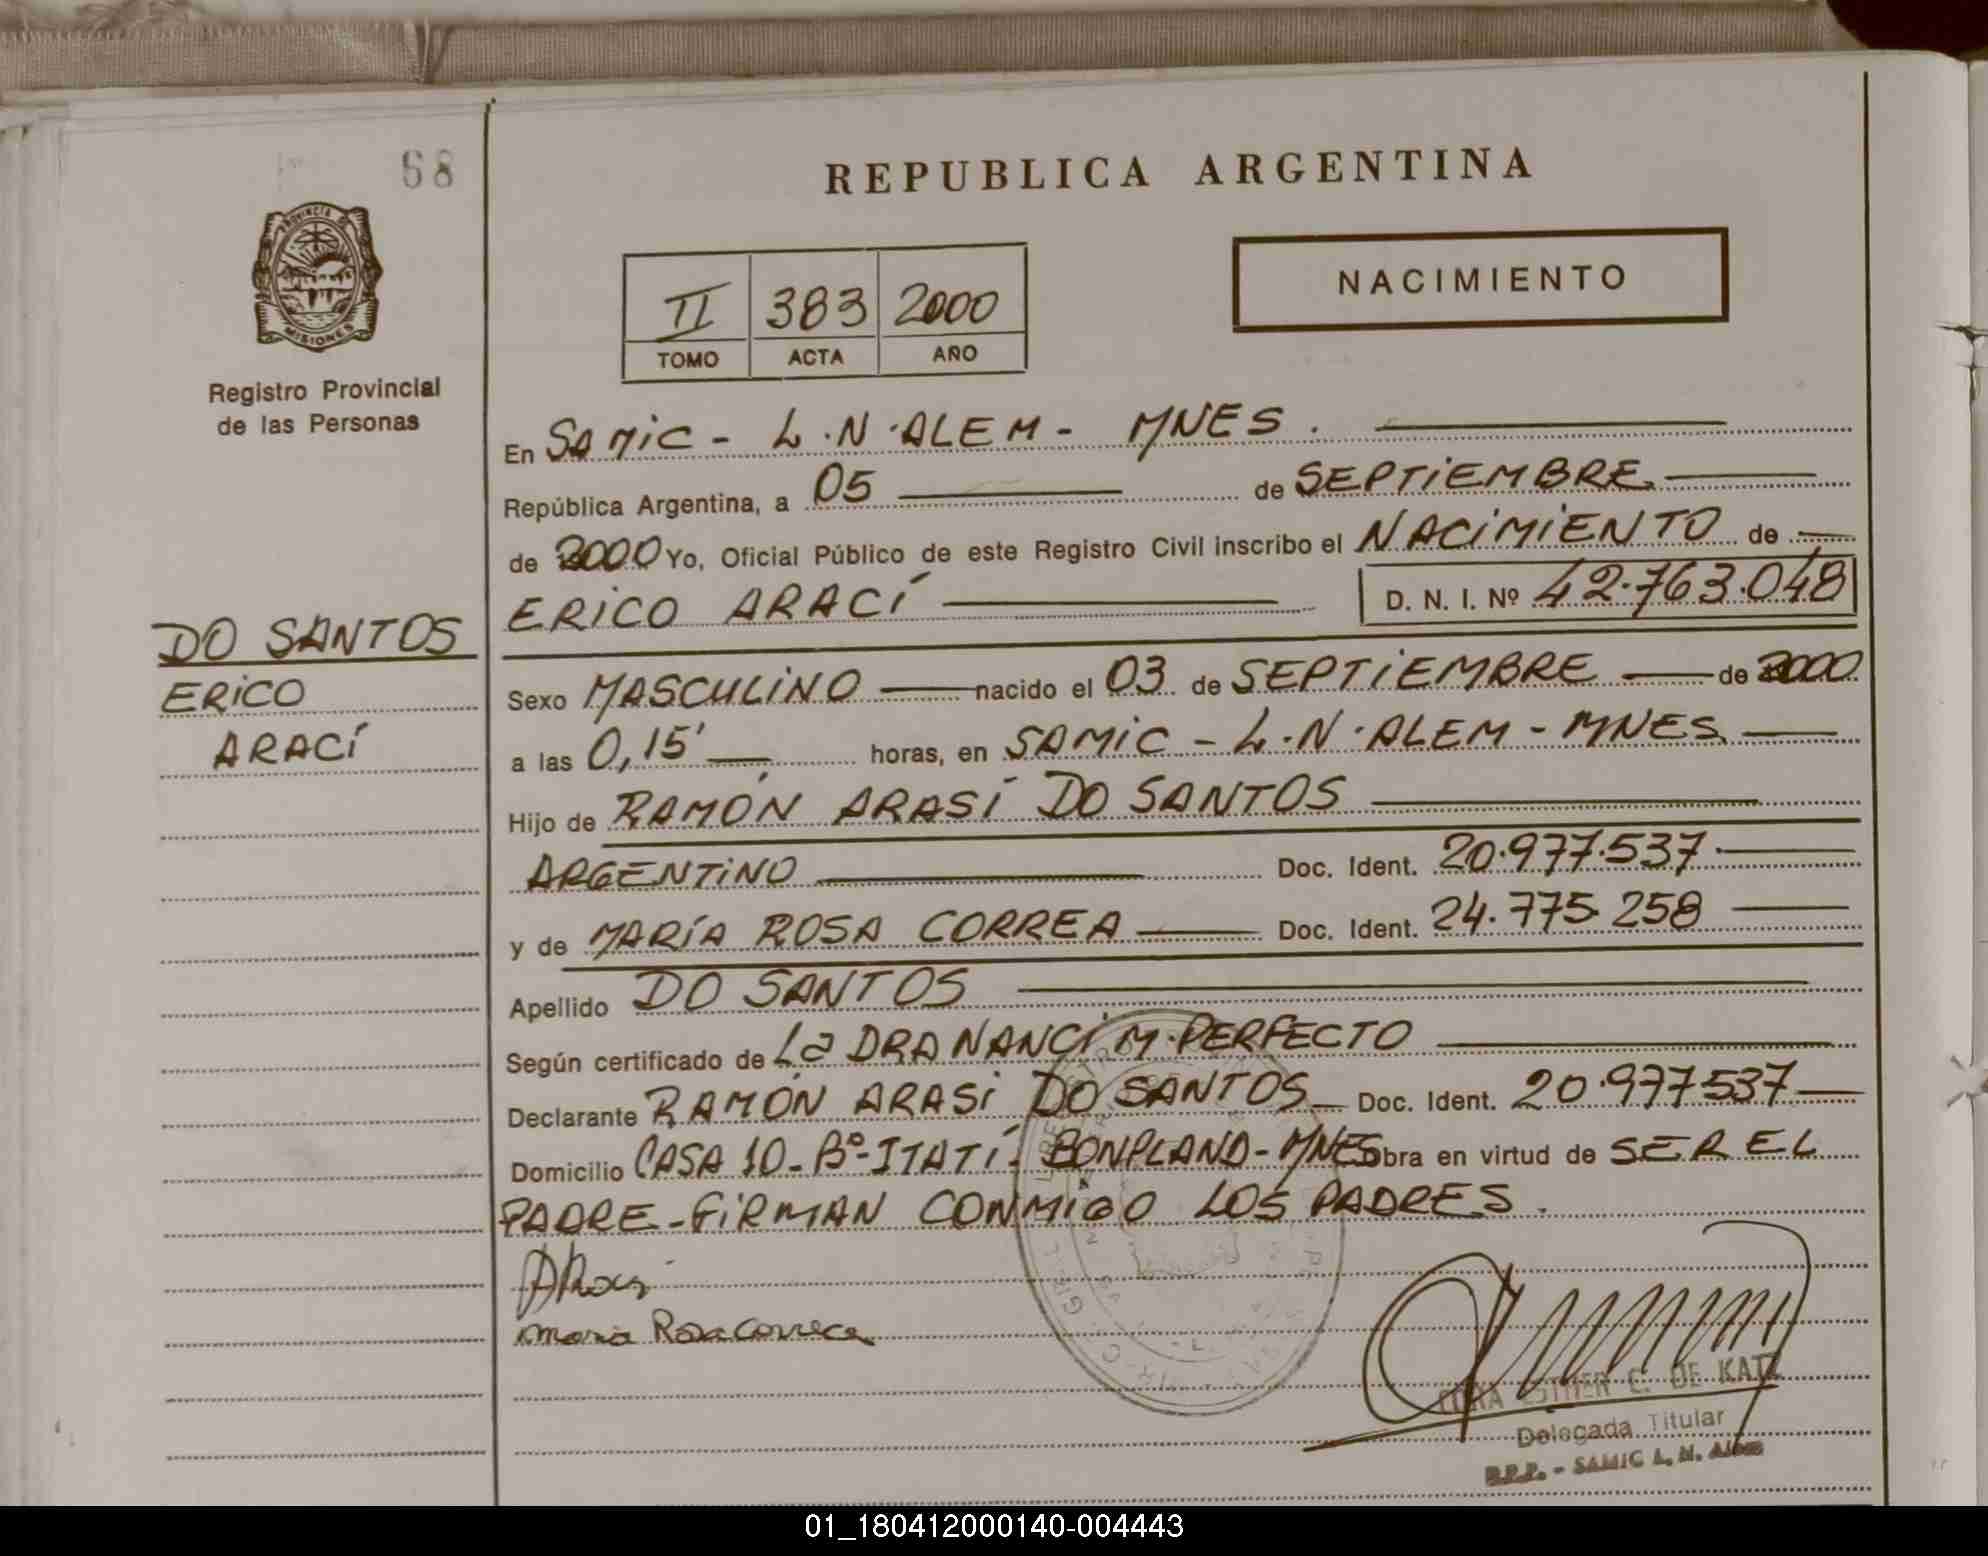 68
REPUBLICA ARGENTINA
PROVINCIA DE
MISIONES
Registro Provincial
de las Personas
NACIMIENTO
II 383 2000
TOMO ACTA AÑO
En SAMiC - L.N.ALEM - MNES.
República Argentina, a 05 de SEPTiEMBRE
de 2000 Yo, Oficial Público de este Registro Civil inscribo el NACiMiENTO de
ERiCO ARACÍ D. N. I. Nº 42.763.048
DO SANTOS
ERiCO
ARACÍ
Sexo MASCULiNO nacido el 03 de SEPTiEMBRE de 2000
a las 0,15' horas, en SAMiC - L.N.ALEM - MNES
Hijo de RAMÓN ARASÍ DO SANTOS
ARGENTiNO Doc. Ident. 20.977.537
y de MARÍA ROSA CORREA Doc. Ident. 24.775.258
Apellido DO SANTOS
Según certificado de La DRA NANCI M. PERFECTO
Declarante RAMÓN ARASi DO SANTOS Doc. Ident. 20.977537
Domicilio CASA 10 - Bº - ITATÍ - BONPLAND - MNES obra en virtud de SER EL
PADRE - FiRMAN CONMiGO LOS PADRES.
Maria Rosa Correa
ESTHER C. DE KATZ
Delegada Titular
R.P.P. - SAMIC L. N. Alem
01_180412000140-004443